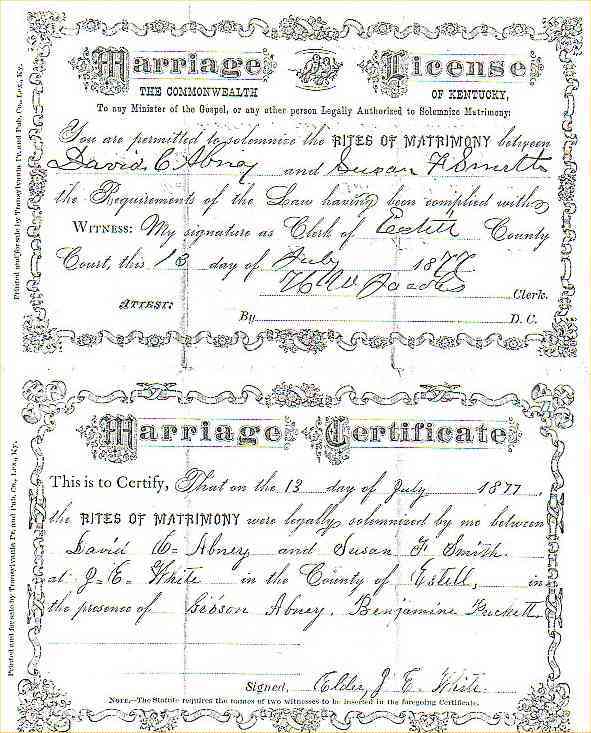 Marriage License
THE COMMONWEALTH OF KENTUCKY,
To any Minister of the Gospel, or any other person Legally Authorized to Solemnize Matrimony:
You are permitted to solemnize the RITES OF MATRIMONY between
David C Abney and Susan F Smith
the Requirements of the Law having been complied with
WITNESS: My signature as Clerk of Estill County
Court, this 13 day of July 1877
Jacobs Clerk.
ATTEST: By D. C.
Printed and for sale by Transylvania Pr. and Pub. Co., Lex., Ky.
Marriage Certificate
This is to Certify, That on the 13 day of July 1877,
the RITES OF MATRIMONY were legally solemnized by me between
David C= Abney and Susan F Smith.
at J=E= White in the County of Estell, in
the presence of Gibson Abney, Benjamine Puckett
Signed, Elder J E. White.
NOTE.—The Statute requires the names of two witnesses to be inserted in the foregoing Certificate.
Printed and for sale by Transylvania Pr. and Pub. Co., Lex., Ky.